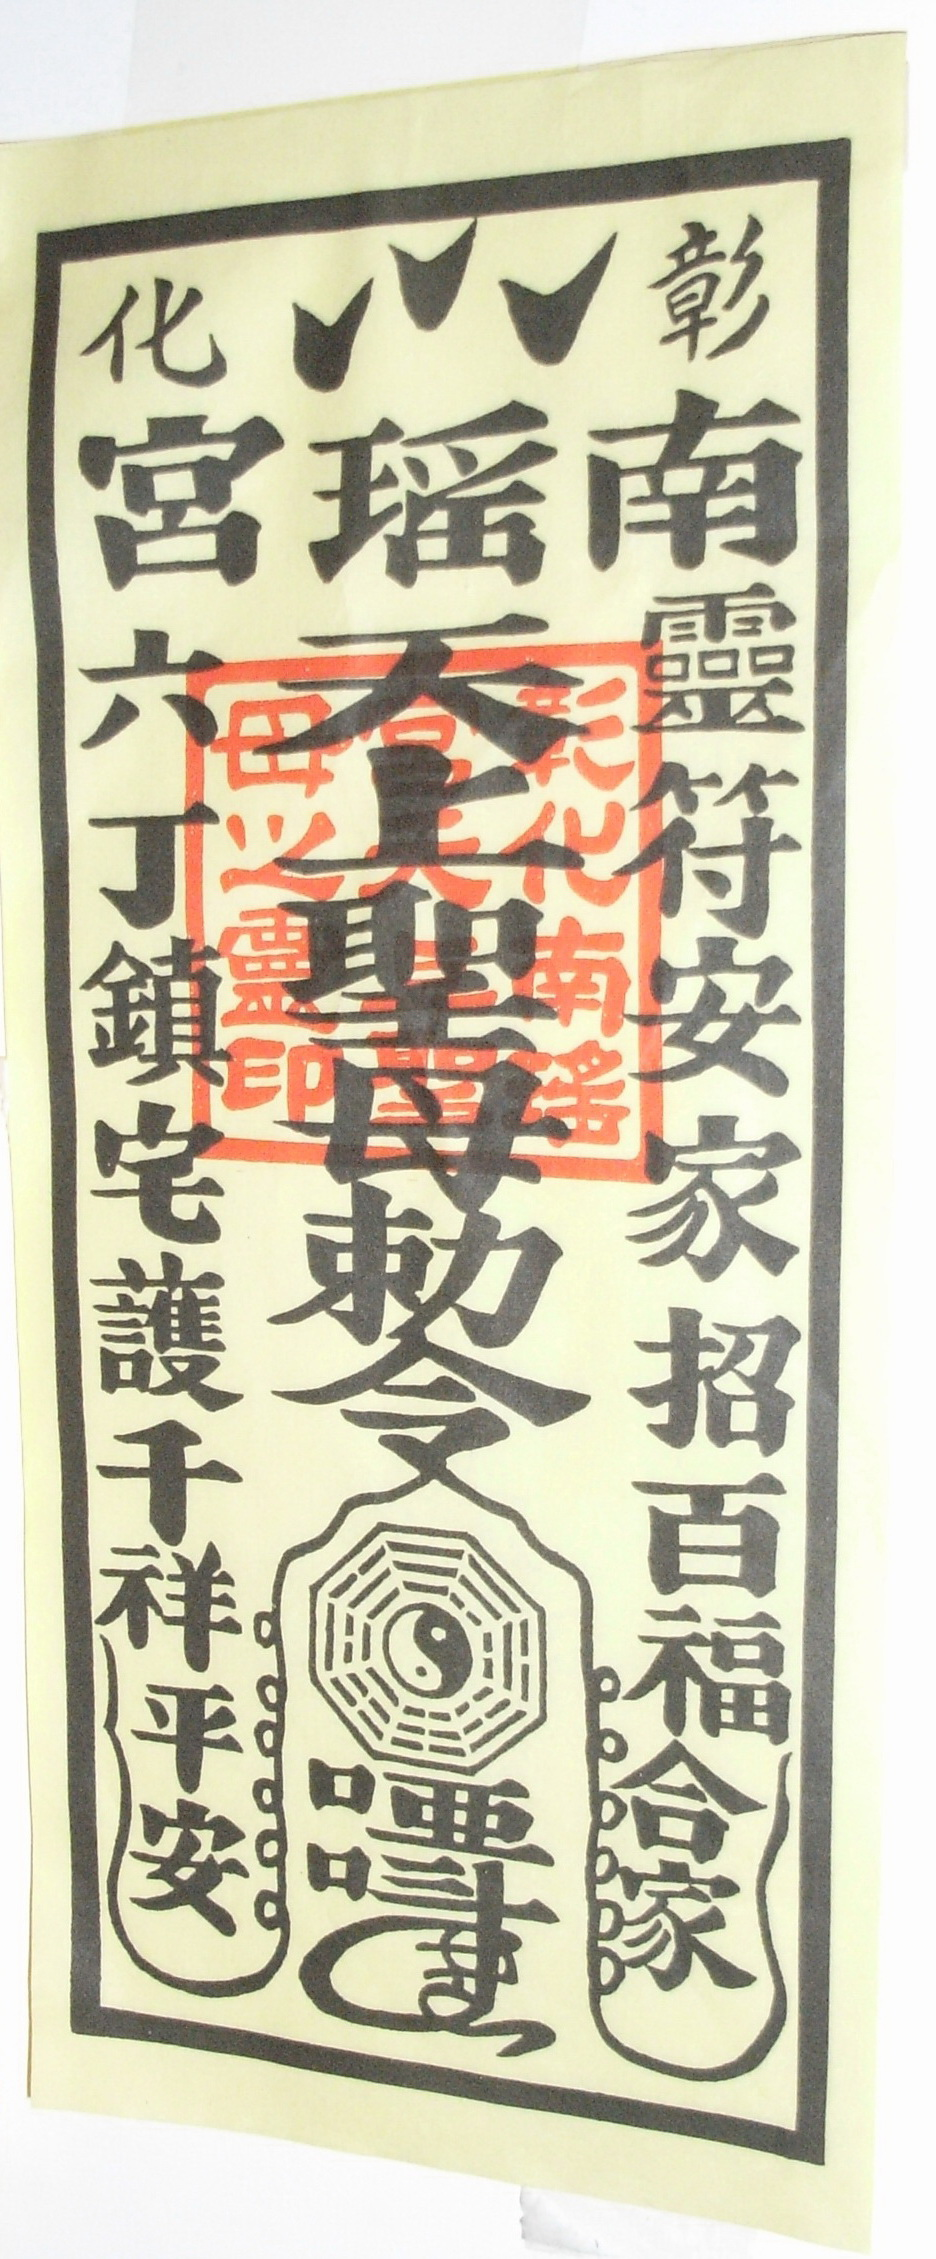 彰化
南瑶宮
靈符安家招百福合家
天上聖母勅令
六丁鎮宅護千祥平安
彰化南瑤
宮天上聖
母之靈印